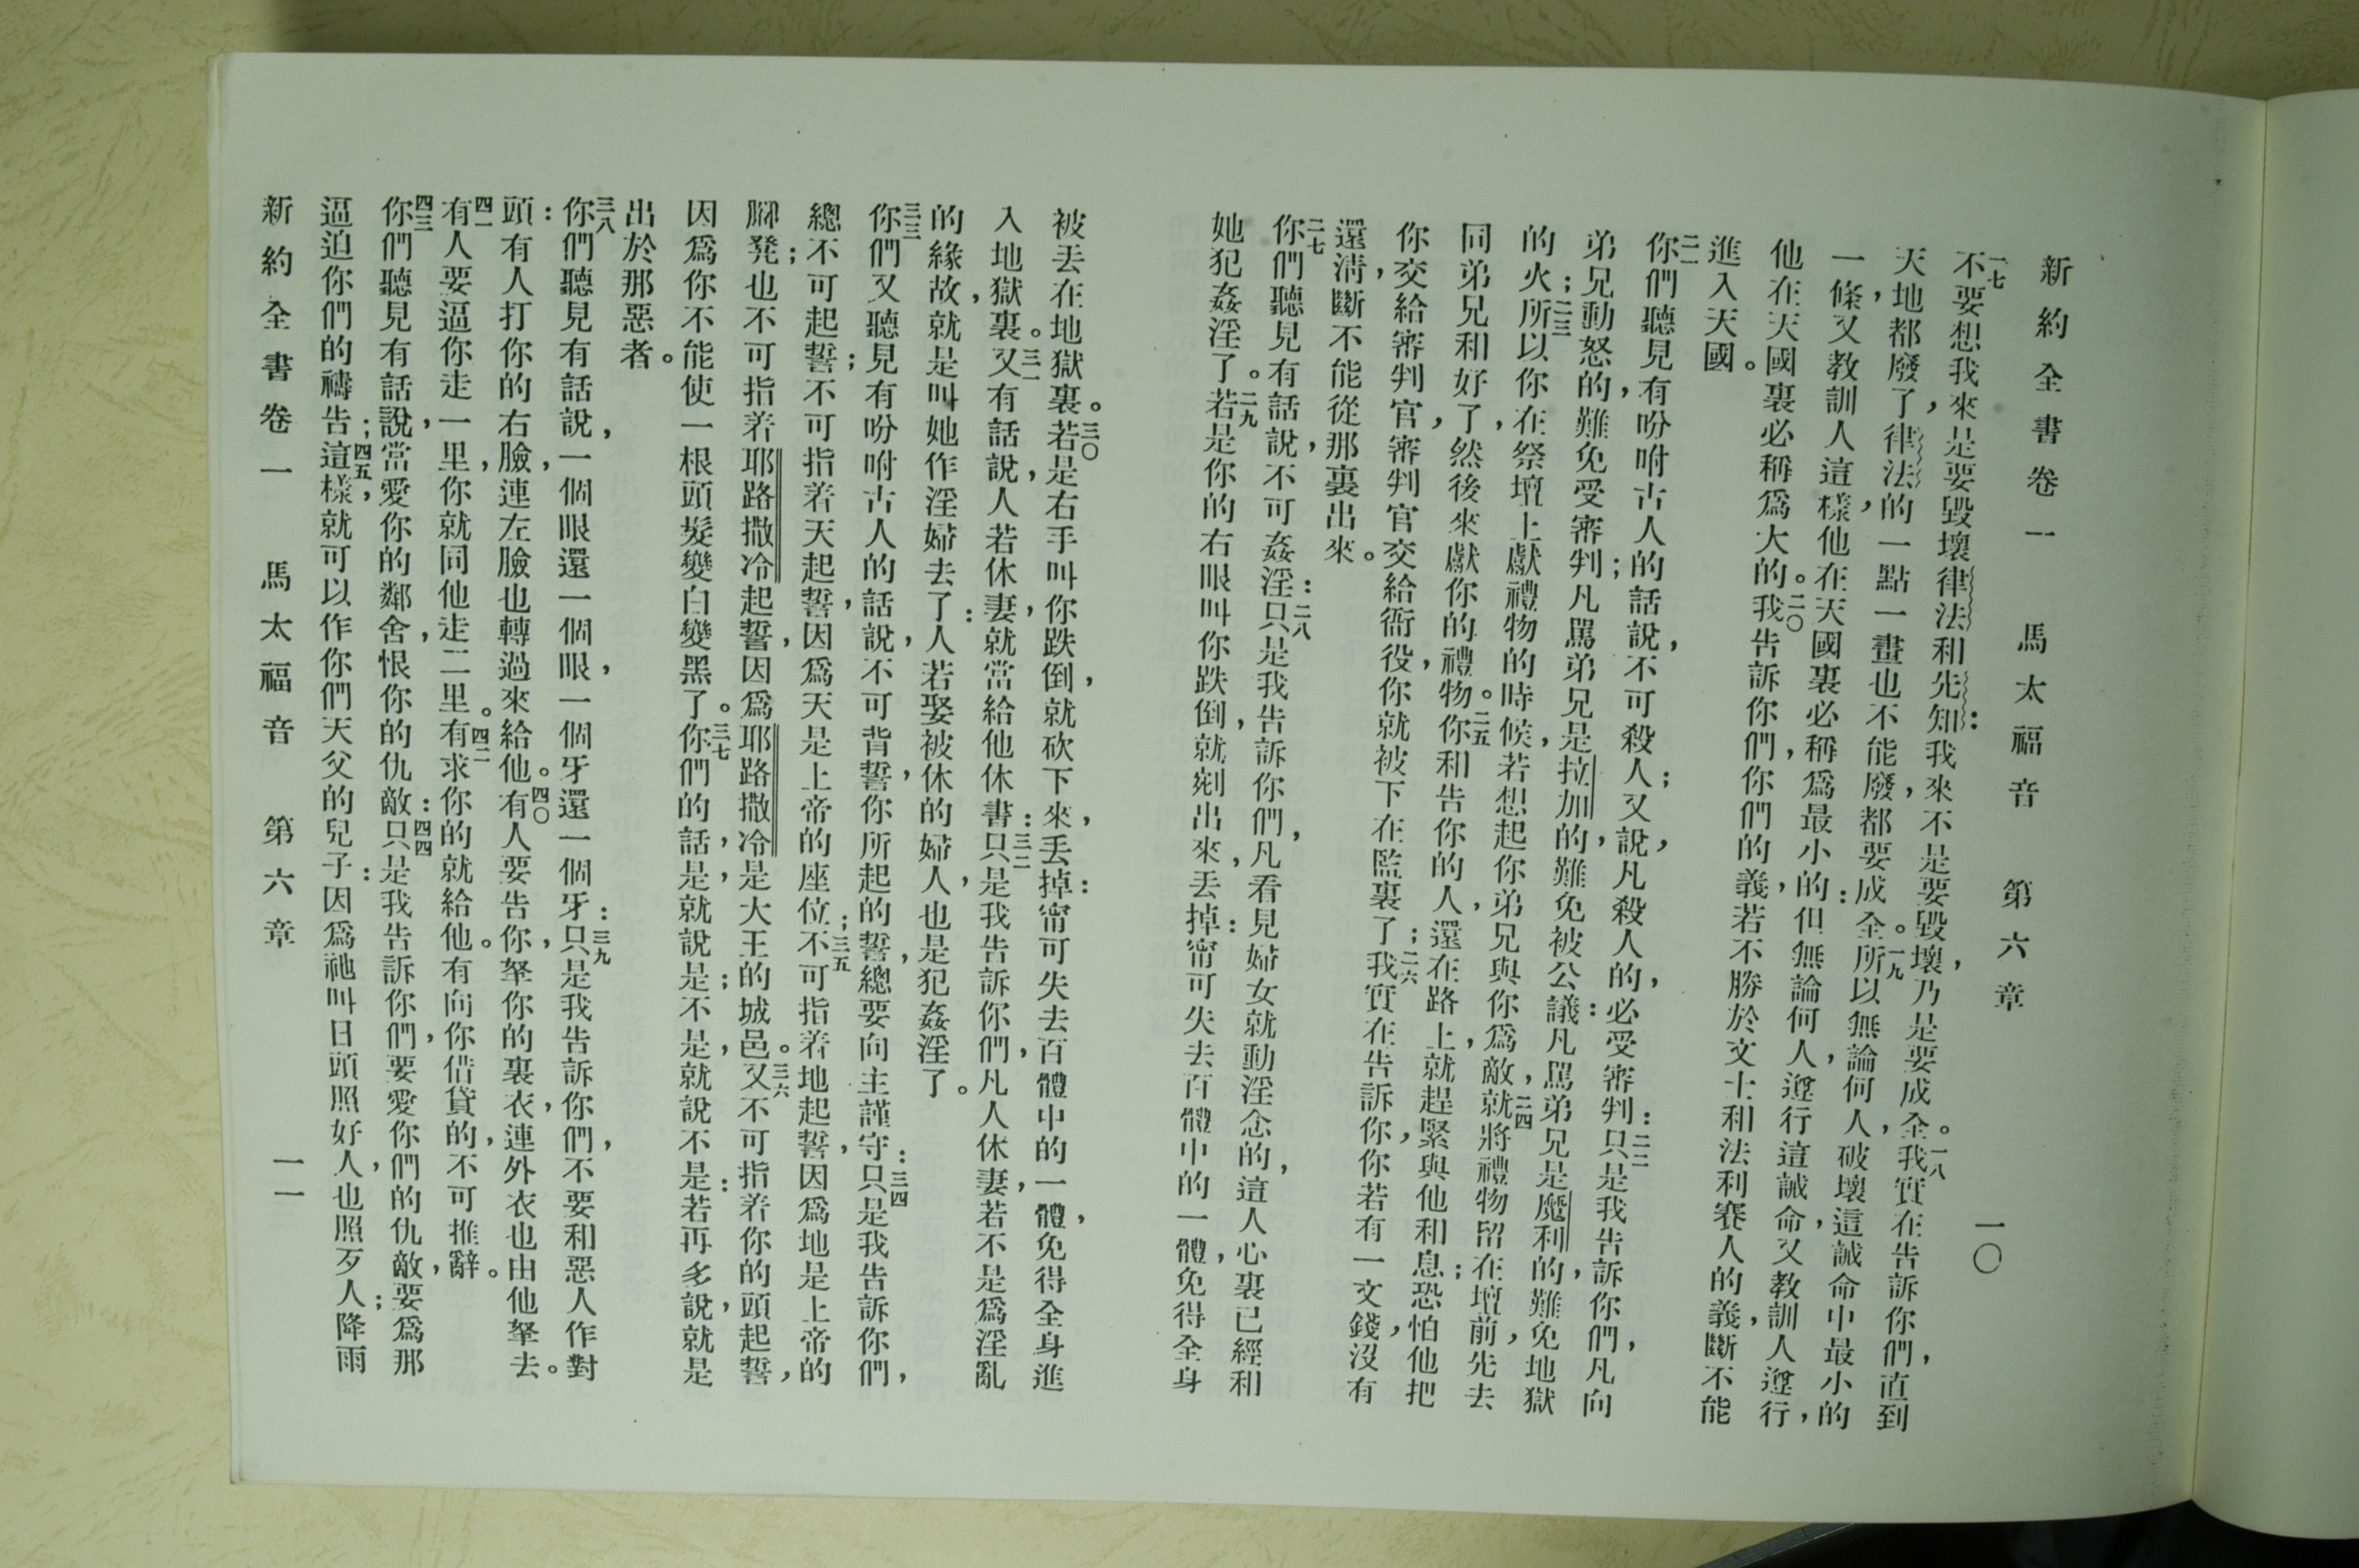 新約全書卷一　馬太福音　第六章　一〇
一七不要想我來是要毀壞律法和先知：我來不是要毀壞，乃是要成全。一八我實在告訴你們，直到
天地都廢了，律法的一點一畫也不能廢，都要成全。一九所以無論何人，破壞這誡命中最小的
一條，又教訓人這樣，他在天國裏必稱爲最小的：但無論何人，遵行這誡命，又教訓人遵行，
他在天國裏必稱爲大的。二〇我告訴你們，你們的義，若不勝於文士和法利賽人的義，斷不能
進入天國。
二一你們聽見有吩咐古人的話說，不可殺人；又說，凡殺人的，必受審判：二二只是我告訴你們，凡向
弟兄動怒的，難免受審判；凡罵弟兄是拉加的，難免被公議：凡罵弟兄是魔利的，難免地獄
的火；二三所以你在祭壇上獻禮物的時候，若想起你弟兄與你爲敵，二四就將禮物留在壇前，先去
同弟兄和好了，然後來獻你的禮物。二五你和告你的人，還在路上，就趕緊與他和息；恐怕他把
你交給審判官，審判官交給衙役，你就被下在監裏了；二六我實在告訴你，你若有一文錢，沒有
還淸，斷不能從那裏出來。
二七你們聽見有話說，不可姦淫：二八只是我告訴你們，凡看見婦女就動淫念的，這人心裏已經和
她犯姦淫了。二九若是你的右眼叫你跌倒，就剜出來，丟掉：甯可失去百體中的一體，免得全身
被丟在地獄裏。三〇若是右手叫你跌倒，就砍下來，丟掉：甯可失去百體中的一體，免得全身進
入地獄裏。三一又有話說，人若休妻，就當給他休書：三二只是我告訴你們，凡人休妻，若不是爲淫亂
的緣故，就是叫她作淫婦去了：人若娶被休的婦人，也是犯姦淫了。
三三你們又聽見有吩咐古人的話說，不可背誓，你所起的誓，總要向主謹守：三四只是我告訴你們，
總不可起誓；不可指着天起誓，因爲天是上帝的座位；三五不可指着地起誓，因爲地是上帝的
腳凳；也不可指着耶路撒冷起誓，因爲耶路撒冷是大王的城邑。三六又不可指着你的頭起誓，
因爲你不能使一根頭髮變白變黑了。三七你們的話，是，就說是；不是，就說不是：若再多說，就是
出於那惡者。
三八你們聽見有話說，一個眼還一個眼，一個牙還一個牙：三九只是我告訴你們，不要和惡人作對
頭：有人打你的右臉，連左臉也轉過來給他。四〇有人要告你，拏你的裏衣，連外衣也由他拏去。
四一有人要逼你走一里，你就同他走二里。四二有求你的就給他。有向你借貸的，不可推辭。
四三你們聽見有話說，當愛你的鄰舍，恨你的仇敵：四四只是我告訴你們，要愛你們的仇敵，要爲那
逼迫你們的禱告；四五這樣，就可以作你們天父的兒子：因爲祂叫日頭照好人，也照歹人；降雨
新約全書卷一　馬太福音　第六章　一一